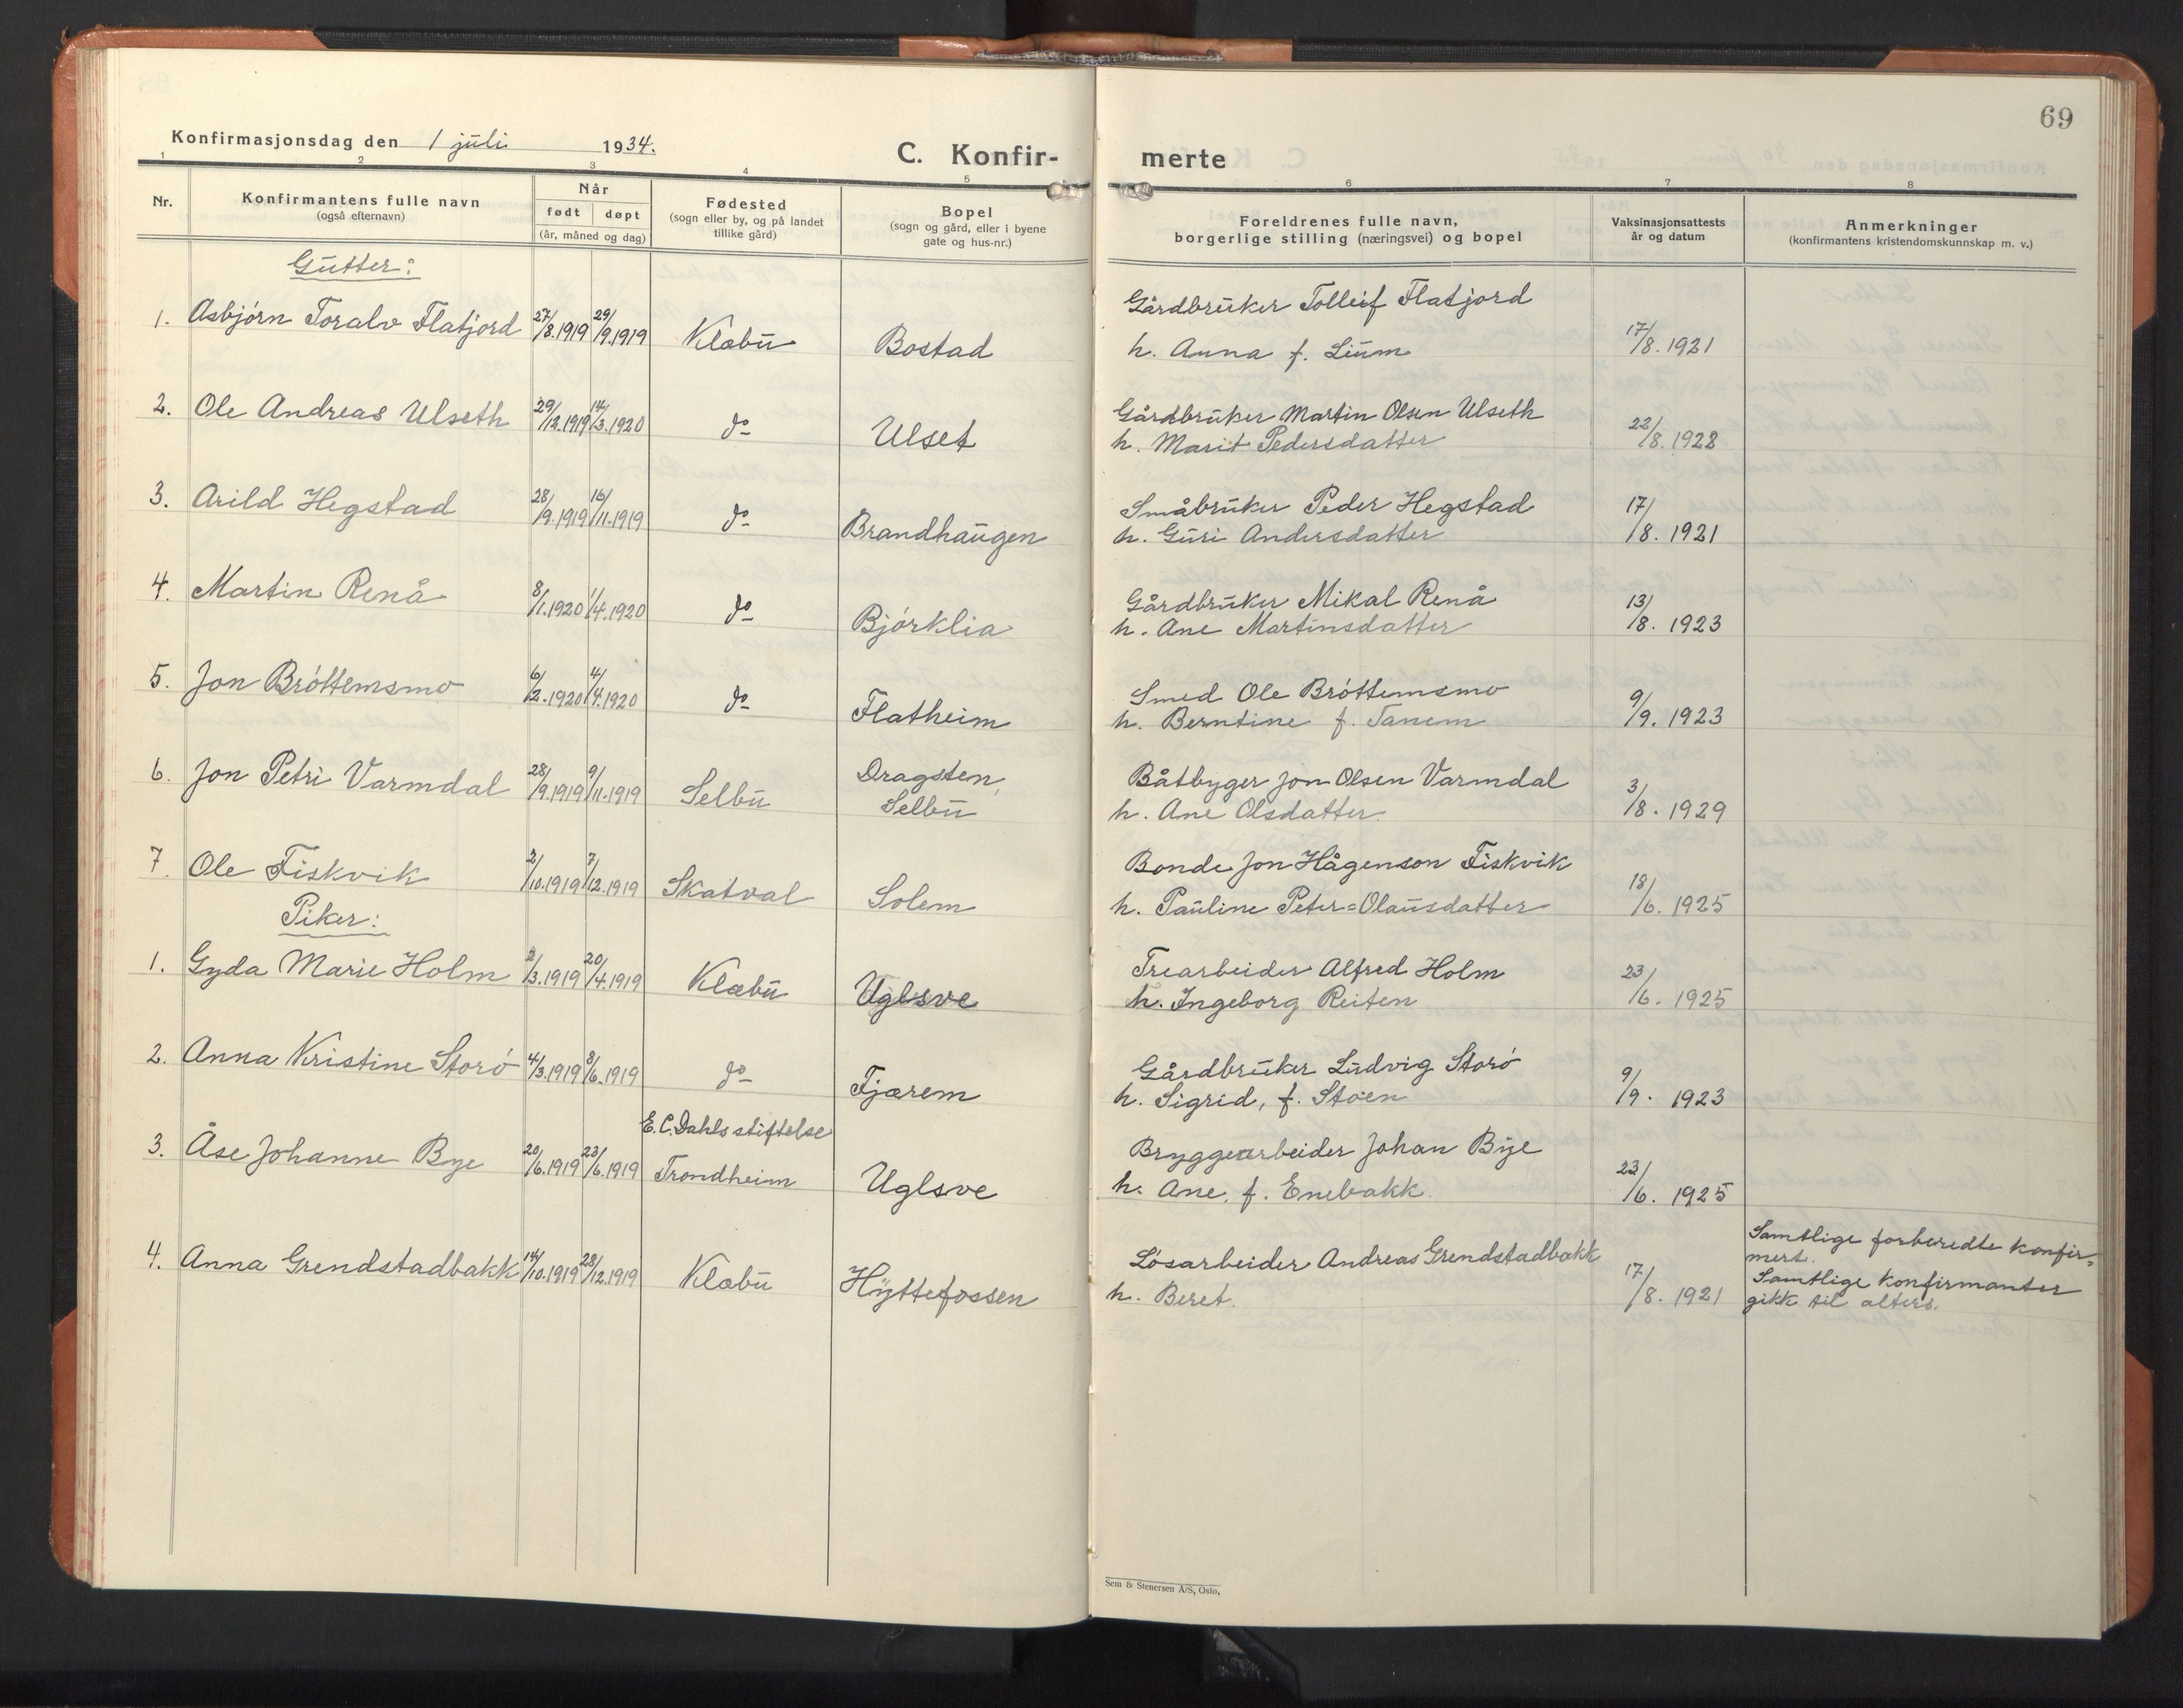 69
Konfirmasjonsdag den 1 juli 1934.
C. Konfir-
merte
1 2 3 4 5 6 7 8
Nr.
Konfirmantens fulle navn
(også efternavn)
Når
født døpt
(år, måned og dag)
Fødested
(sogn eller by, og på landet
tillike gård)
Bopel
(sogn og gård, eller i byene
gate og hus-nr.)
Foreldrenes fulle navn,
borgerlige stilling (næringsvei) og bopel
Vaksinasjonsattests
år og datum
Anmerkninger
(konfirmantens kristendomskunnskap m. v.)
Gutter:
1. Asbjørn Toralv Flatjord 27/8.1919 29/9.1919 Klæbu Bostad Gårdbruker Tolleif Flatjord
h. Anna f. Lium 17/8. 1921
2. Ole Andreas Ulseth 29/12.1919 14/3.1920 do Ulset Gårdbruker Martin Olsen Ulseth
h. Marit Pedersdatter 22/8. 1928
3. Arild Hegstad 28/9.1919 16/11.1919 do Brandhaugen Småbruker Peder Hegstad
h. Guri Andersdatter 17/8. 1921
4. Martin Renå 8/1.1920 1/4.1920 do Bjørklia Gårdbruker Mikal Renå
h. Ane Martinsdatter 13/8. 1923
5. Jon Brøttemsmo 6/2.1920 4/4.1920 do Flatheim Smed Ole Brøttemsmo
h. Berntine f. Tanem 9/9. 1923
6. Jon Petri Varmdal 28/9.1919 9/11.1919 Selbu Dragsten,
Selbu
Båtbyger Jon Olsen Varmdal
h. Ane Olsdatter. 3/8. 1929
7. Ole Fiskvik 2/10.1919 7/12.1919 Skatval Solem Bonde Jon Hågenson Fiskvik
h. Pauline Peter=Olausdatter 18/6. 1925
Piker:
1. Gyda Marie Holm 2/3.1919 20/4.1919 Klæbu Uglsve Trearbeider Alfred Holm
h. Ingeborg Reiten 23/6. 1925
2. Anna Kristine Storø 4/3.1919 8/6.1919 do Fjærem Gårdbruker Ludvig Storø
h. Sigrid, f. Støen 9/9. 1923
3. Åse Johanne Bye 20/6.1919 23/6.1919 E.C.Dahls stiftelse
Trondheim Uglsve Bryggearbeider Johan Bye
h. Ane, f. Enebakk. 23/6. 1925
4. Anna Grendstadbakk 14/10.1919 28/12.1919 Klæbu Hyttefossen Løsarbeider Andreas Grendstadbakk
h. Beret. 17/8. 1921
Samtlige forberedte konfir=
mert.
Samtlige konfirmanter
gikk til alters.
Sem & Stenersen A/S, Oslo.